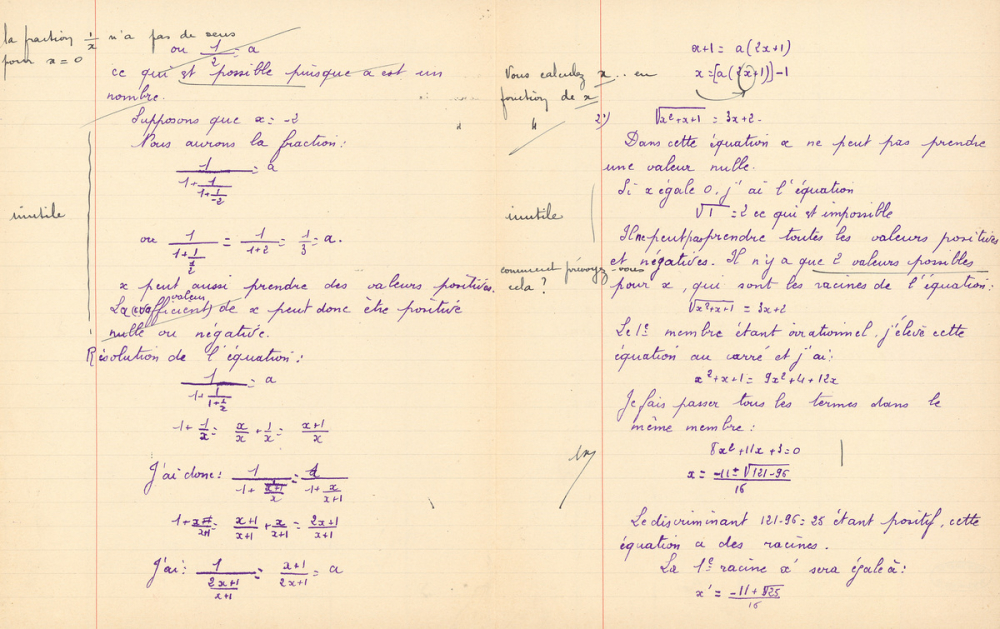 la fraction 1/x n'a pas de sens
pour x = 0
ou 1/2 = a
ce qui est possible puisque a est un
nombre.
Supposons que x = -2
Nous aurons la fraction:
1/(1+1/(1+1/-2)) = a
inutile
ou 1/(1+1/(1/2)) = 1/(1+2) = 1/3 = a.
x peut aussi prendre des valeurs positives.
La (coefficient) valeur de x peut donc être positive
nulle ou négative.
Résolution de l'équation:
1/(1+1/(1+1/x)) = a
1+ 1/x = x/x + 1/x = (x+1)/x
J'ai donc: 1/(1+1/((x+1)/x)) = 1/(1+x/(x+1))
1+x/(x+1) = (x+1)/(x+1) + x/(x+1) = (2x+1)/(x+1)
J'ai: 1/((2x+1)/(x+1)) = (x+1)/(2x+1) = a
x+1 = a(2x+1)
x = [a(2x+1)]-1
Vous calculez x .. en
fonction de x
2°) √x²+x+1 = 3x+2.
Dans cette équation x ne peut pas prendre
une valeur nulle.
Si x égale 0, j'ai l'équation
√1 = 2 ce qui est impossible
inutile
Il ne peut pas prendre toutes les valeurs positives
et négatives. Il n'y a que 2 valeurs possibles
comment prévoyez-vous
cela ?
pour x, qui sont les racines de l'équation:
√x²+x+1 = 3x+2
Le 1e membre étant irrationnel, j'élève cette
équation au carré et j'ai:
x²+x+1 = 9x²+4+12x
Je fais passer tous les termes dans le
même membre:
8x²+11x+3=0
x = (-11 ± √121-96)/16
Le discriminant 121-96=25 étant positif, cette
équation a des racines.
La 1e racine x' sera égale à:
x' = (-11+√25)/16